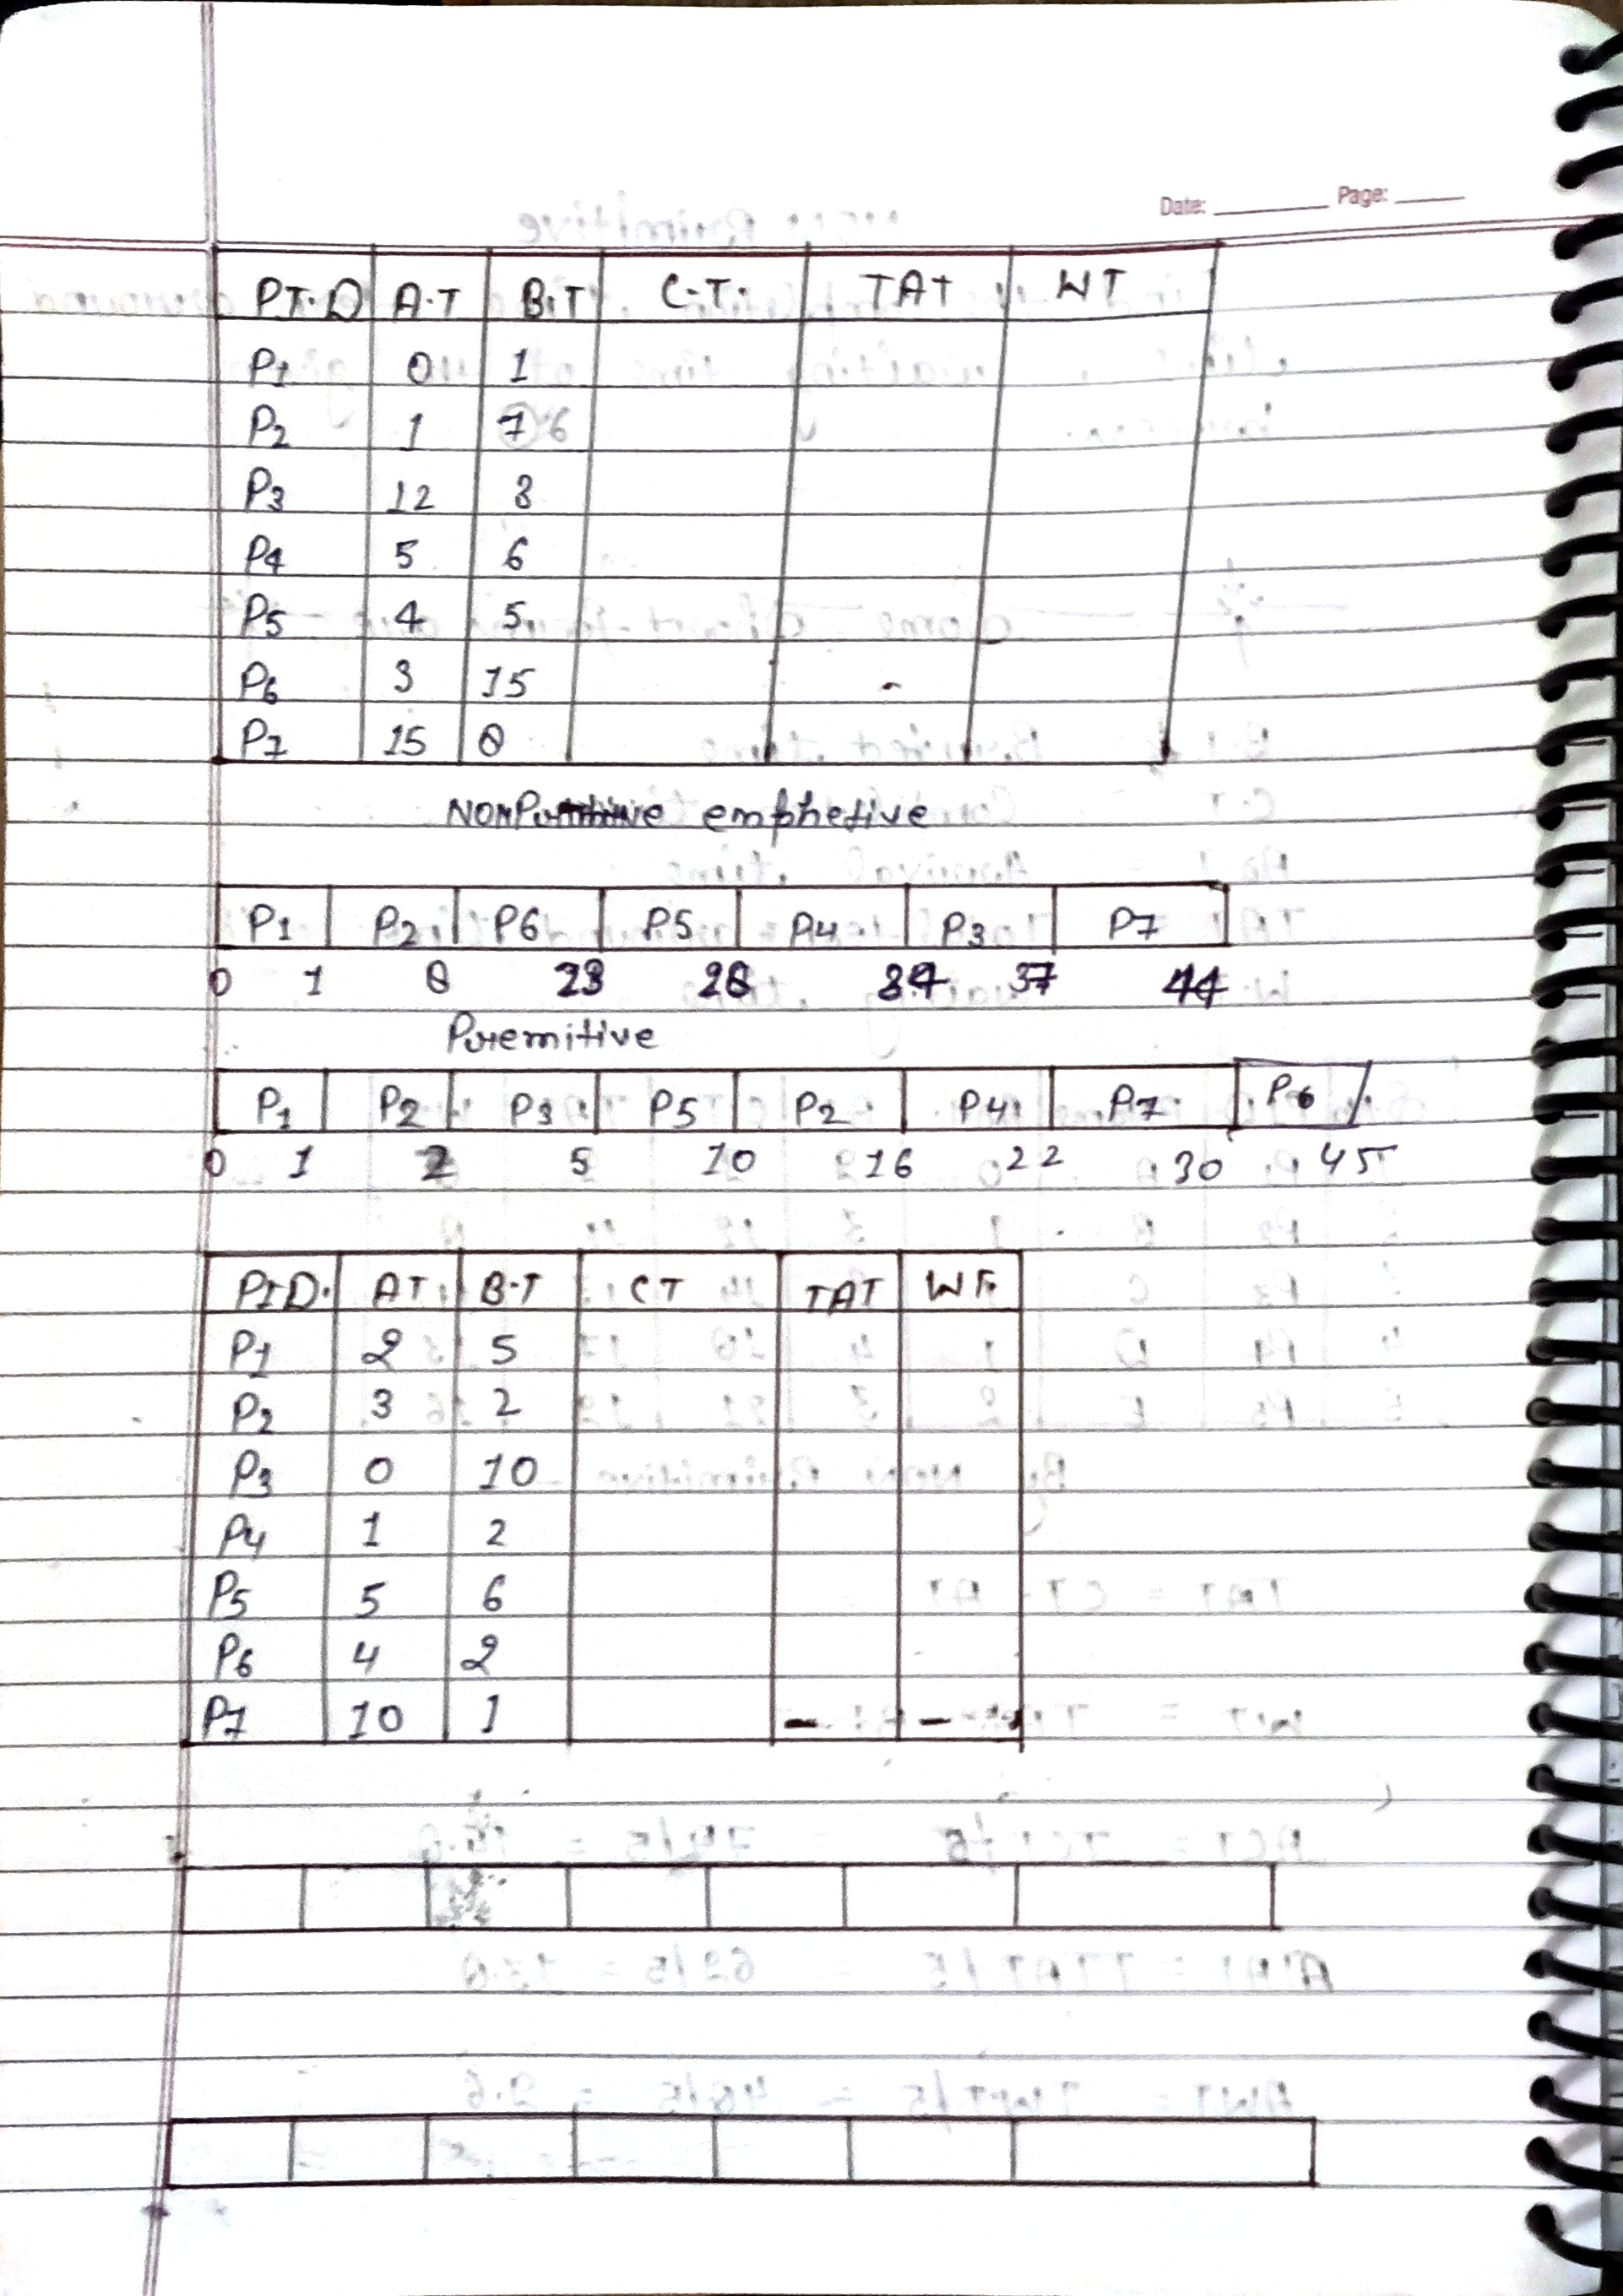 Date: ________ Page: ____
PI.D A.T B.T C.T. TAT WT
P1 0 1
P2 1 7 6
P3 12 3
P4 5 6
P5 4 5
P6 3 15
P7 15 8
emphetive
P1 P2 P6 P5 P4 P3 P7
0 1 8 23 28 34 37 44
Premitive
P1 P2 P3 P5 P2 P4 P7 P6
0 1 2 5 10 16 22 30 45
PID. AT B.T CT TAT WT
P1 2 5
P2 3 2
P3 0 10
P4 1 2
P5 5 6
P6 4 2
P7 10 1 - -